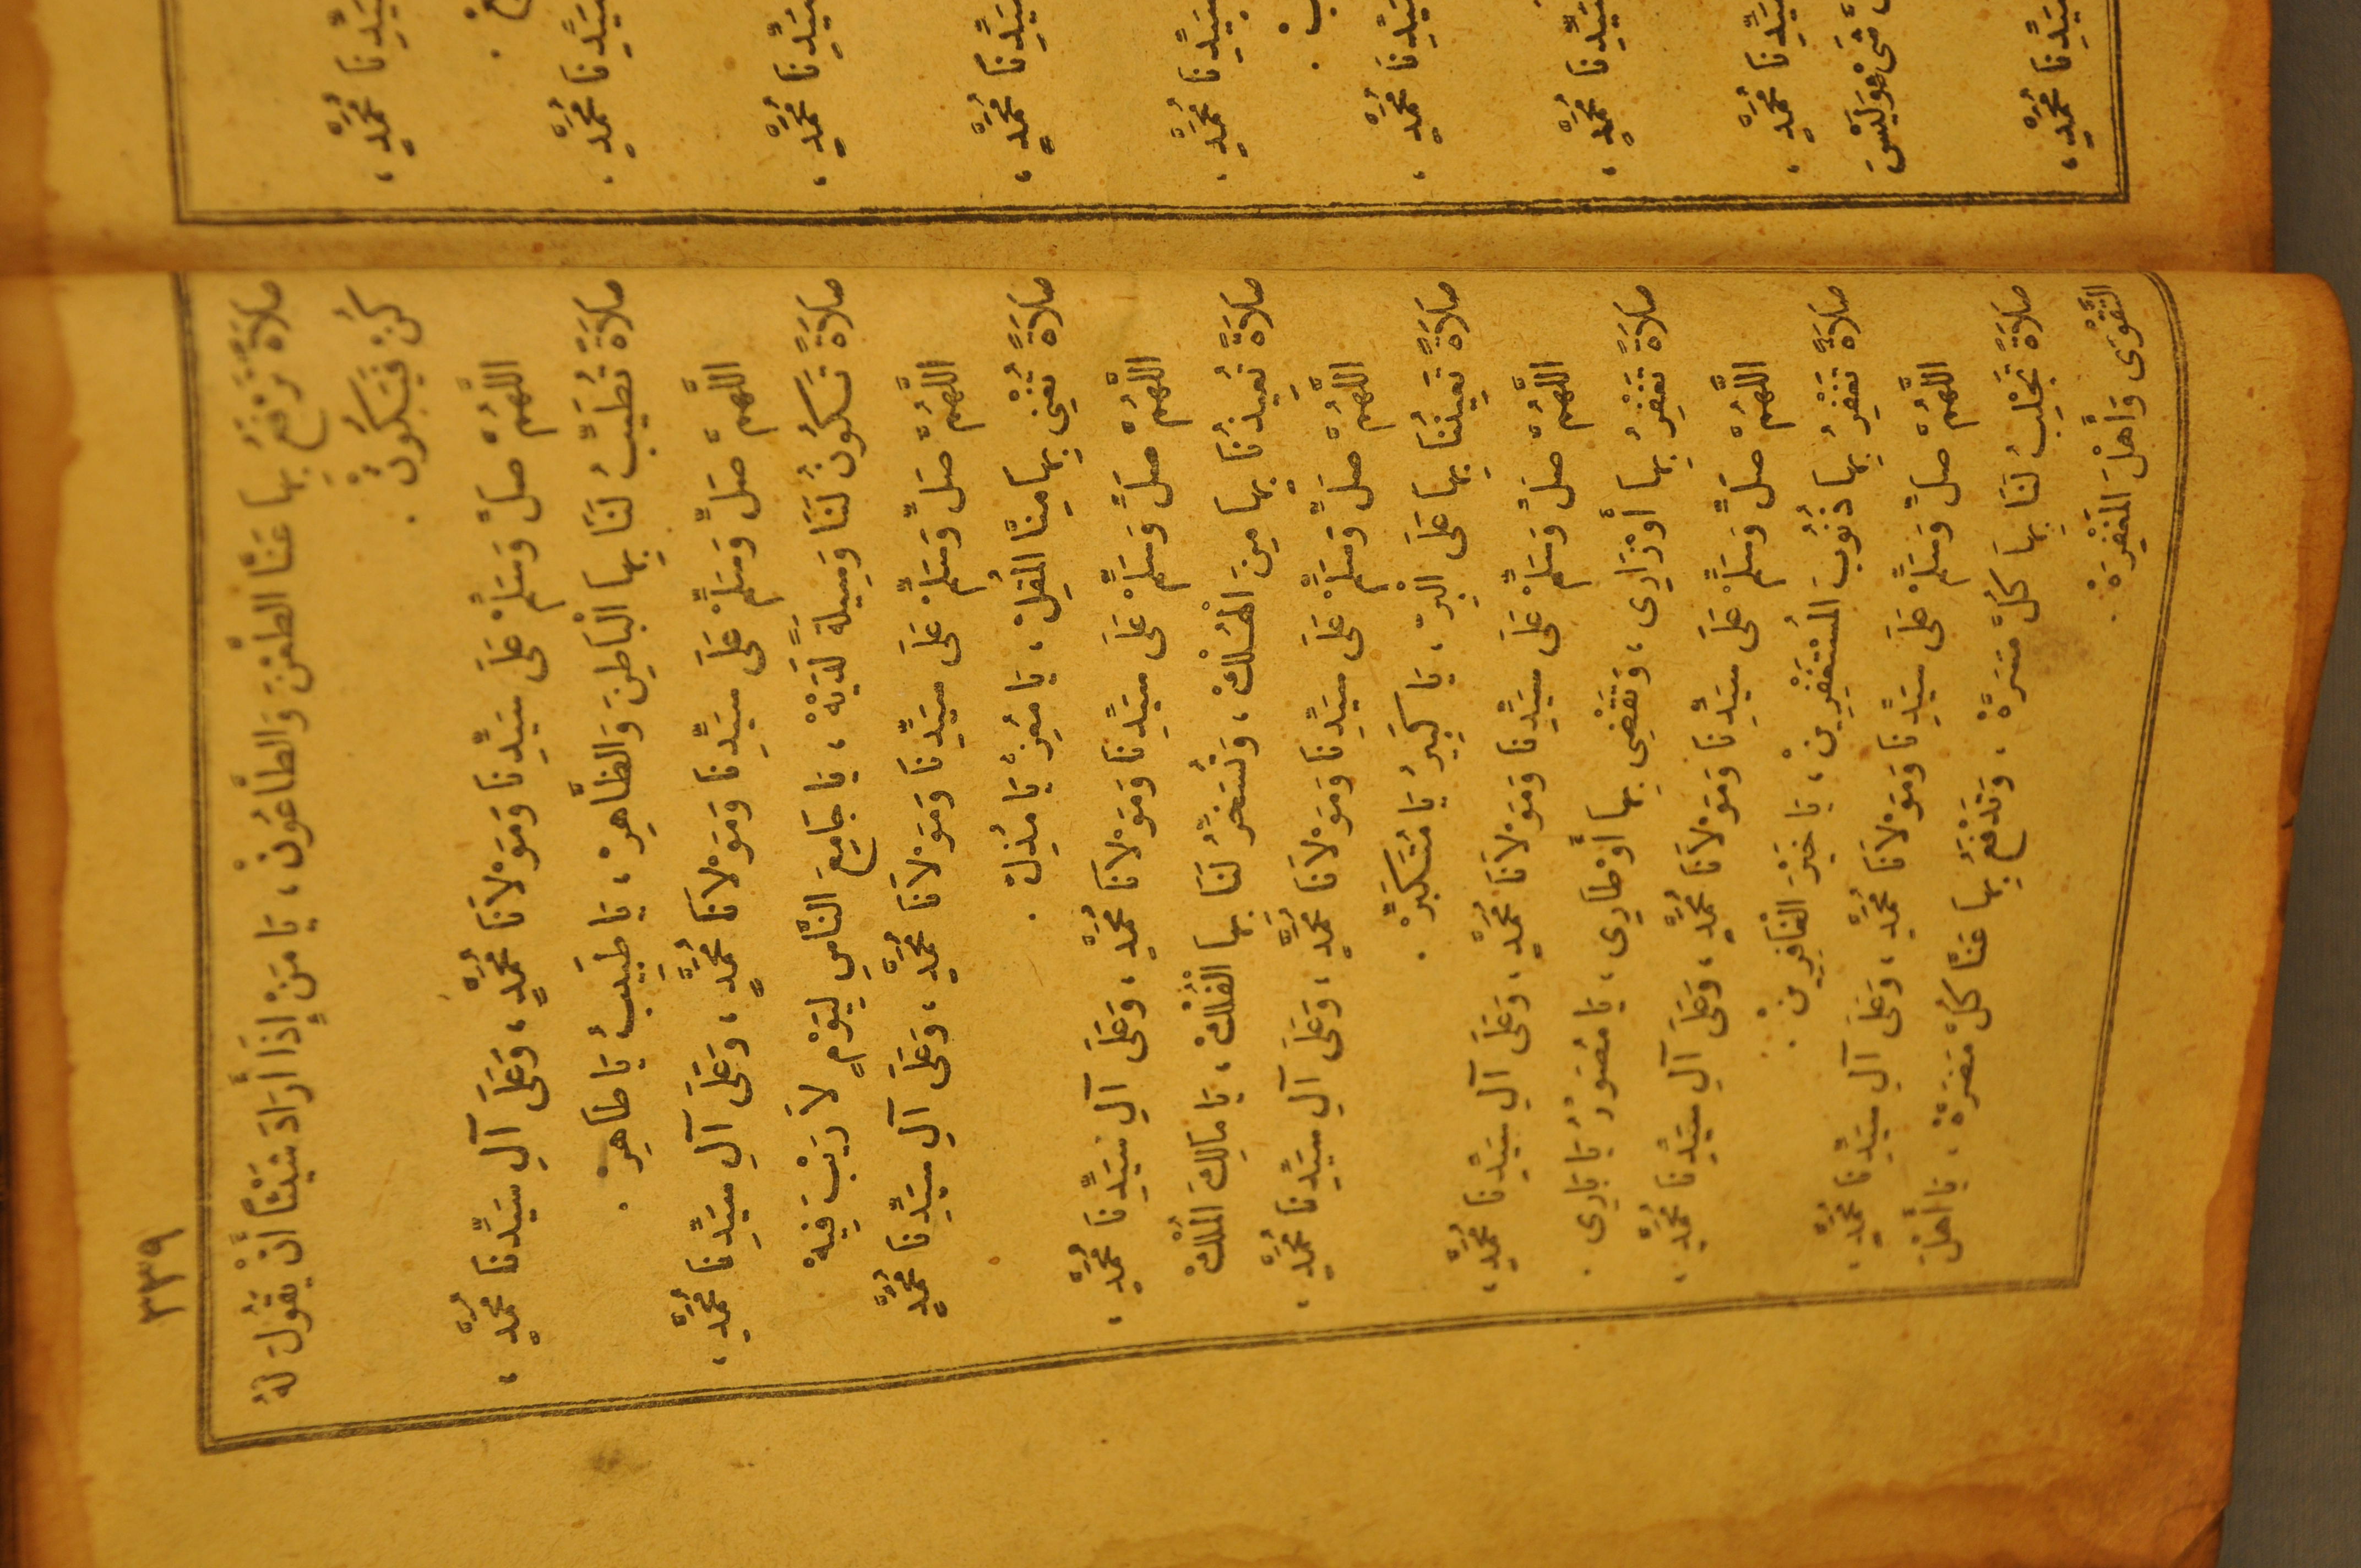 ٣٣٩
صَلَاةً تَرْفَعُ بِهَا عَنَّا الطَّعْنَ وَالطَّاعُونْ ، يَا مَنْ إِذَا أَرَادَ شَيْئًا أَنْ يَقُولَ لَهُ
كُنْ فَيَكُونُ .
اللَّهُمَّ صَلِّ وَسَلِّمْ عَلَى سَيِّدِنَا وَمَوْلَانَا مُحَمَّدٍ ، وَعَلَى آلِ سَيِّدِنَا مُحَمَّدٍ ،
صَلَاةً تُطَيِّبُ لَنَا بِهَا الْبَاطِنَ وَالظَّاهِرْ ، يَا طَبِيبُ يَا طَاهِرْ .
اللَّهُمَّ صَلِّ وَسَلِّمْ عَلَى سَيِّدِنَا وَمَوْلَانَا مُحَمَّدٍ ، وَعَلَى آلِ سَيِّدِنَا مُحَمَّدٍ ،
صَلَاةً تَكُونُ لَنَا وَسِيلَةً لَدَيْهْ ، يَا جَامِعَ النَّاسِ لِيَوْمٍ لَا رَيْبَ فِيهْ
اللَّهُمَّ صَلِّ وَسَلِّمْ عَلَى سَيِّدِنَا وَمَوْلَانَا مُحَمَّدٍ ، وَعَلَى آلِ سَيِّدِنَا مُحَمَّدٍ
صَلَاةً تُغْنِي بِهَا مِنَّا الْمُقِلْ ، يَا مُعِزُّ يَا مُذِلْ .
اللَّهُمَّ صَلِّ وَسَلِّمْ عَلَى سَيِّدِنَا وَمَوْلَانَا مُحَمَّدٍ ، وَعَلَى آلِ سَيِّدِنَا مُحَمَّدٍ ،
صَلَاةً تُعِيذُنَا بِهَا مِنَ الْهُلْكْ ، وَتُسَخِّرُ لَنَا بِهَا الْفُلْكْ ، يَا مَالِكَ الْمُلْكْ
اللَّهُمَّ صَلِّ وَسَلِّمْ عَلَى سَيِّدِنَا وَمَوْلَانَا مُحَمَّدٍ ، وَعَلَى آلِ سَيِّدِنَا مُحَمَّدٍ ،
صَلَاةً تُعِينُنَا بِهَا عَلَى الْبِرّْ ، يَا كَبِيرُ يَا مُتَكَبِّرْ .
اللَّهُمَّ صَلِّ وَسَلِّمْ عَلَى سَيِّدِنَا وَمَوْلَانَا مُحَمَّدٍ ، وَعَلَى آلِ سَيِّدِنَا مُحَمَّدٍ ،
صَلَاةً تَغْفِرُ بِهَا أَوْزَارِى ، وَتَقْضِى بِهَا أَوْطَارِى ، يَا مُصَوِّرُ يَا بَارِى .
اللَّهُمَّ صَلِّ وَسَلِّمْ عَلَى سَيِّدِنَا وَمَوْلَانَا مُحَمَّدٍ ، وَعَلَى آلِ سَيِّدِنَا مُحَمَّدٍ ،
صَلَاةً تَغْفِرُ بِهَا ذُنُوبَ الْمُسْتَغْفِرِينْ ، يَا خَيْرَ الْغَافِرِينْ .
اللَّهُمَّ صَلِّ وَسَلِّمْ عَلَى سَيِّدِنَا وَمَوْلَانَا مُحَمَّدٍ ، وَعَلَى آلِ سَيِّدِنَا مُحَمَّدٍ ،
صَلَاةً تَجْلِبُ لَنَا بِهَا كُلَّ مَسَرَّةْ ، وَتَدْفَعُ بِهَا عَنَّا كُلَّ مَضَرَّةْ ، يَا أَهْلَ
التَّقْوَى وَأَهْلَ الْمَغْفِرَةْ .
سَيِّدِنَا مُحَمَّدٍ ،
سَيِّدِنَا مُحَمَّدٍ ،
سَيِّدِنَا مُحَمَّدٍ ،
سَيِّدِنَا مُحَمَّدٍ ،
سَيِّدِنَا مُحَمَّدٍ ،
سَيِّدِنَا مُحَمَّدٍ ،
سَيِّدِنَا مُحَمَّدٍ ،
سَيِّدِنَا مُحَمَّدٍ ،
سَيِّدِنَا مُحَمَّدٍ ،